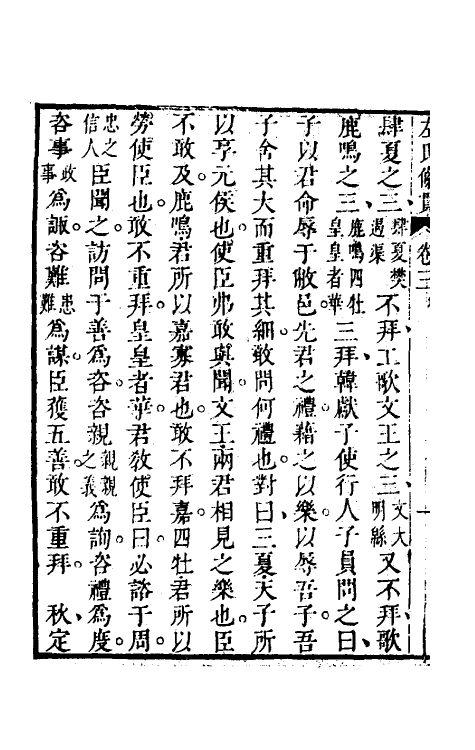 左氏條貫 卷三
肆夏之三肆夏樊遏渠不拜工歌文王之三文大明緜又不拜歌
鹿鳴之三鹿鳴四牡皇皇者華三拜韓獻子使行人子員問之曰
子以君命辱于敝邑先君之禮藉之以樂以辱吾子吾
子舍其大而重拜其細敢問何禮也對曰三夏天子所
以享元侯也使臣弗敢與聞文王兩君相見之樂也臣
不敢及鹿鳴君所以嘉寡君也敢不拜嘉四牡君所以
勞使臣也敢不重拜皇皇者華君教使臣曰必諮于周
忠信之人臣聞之訪問于善為咨咨親親親之義為詢咨禮為度
咨事政事為諏咨難患難為謀臣獲五善敢不重拜 秋定